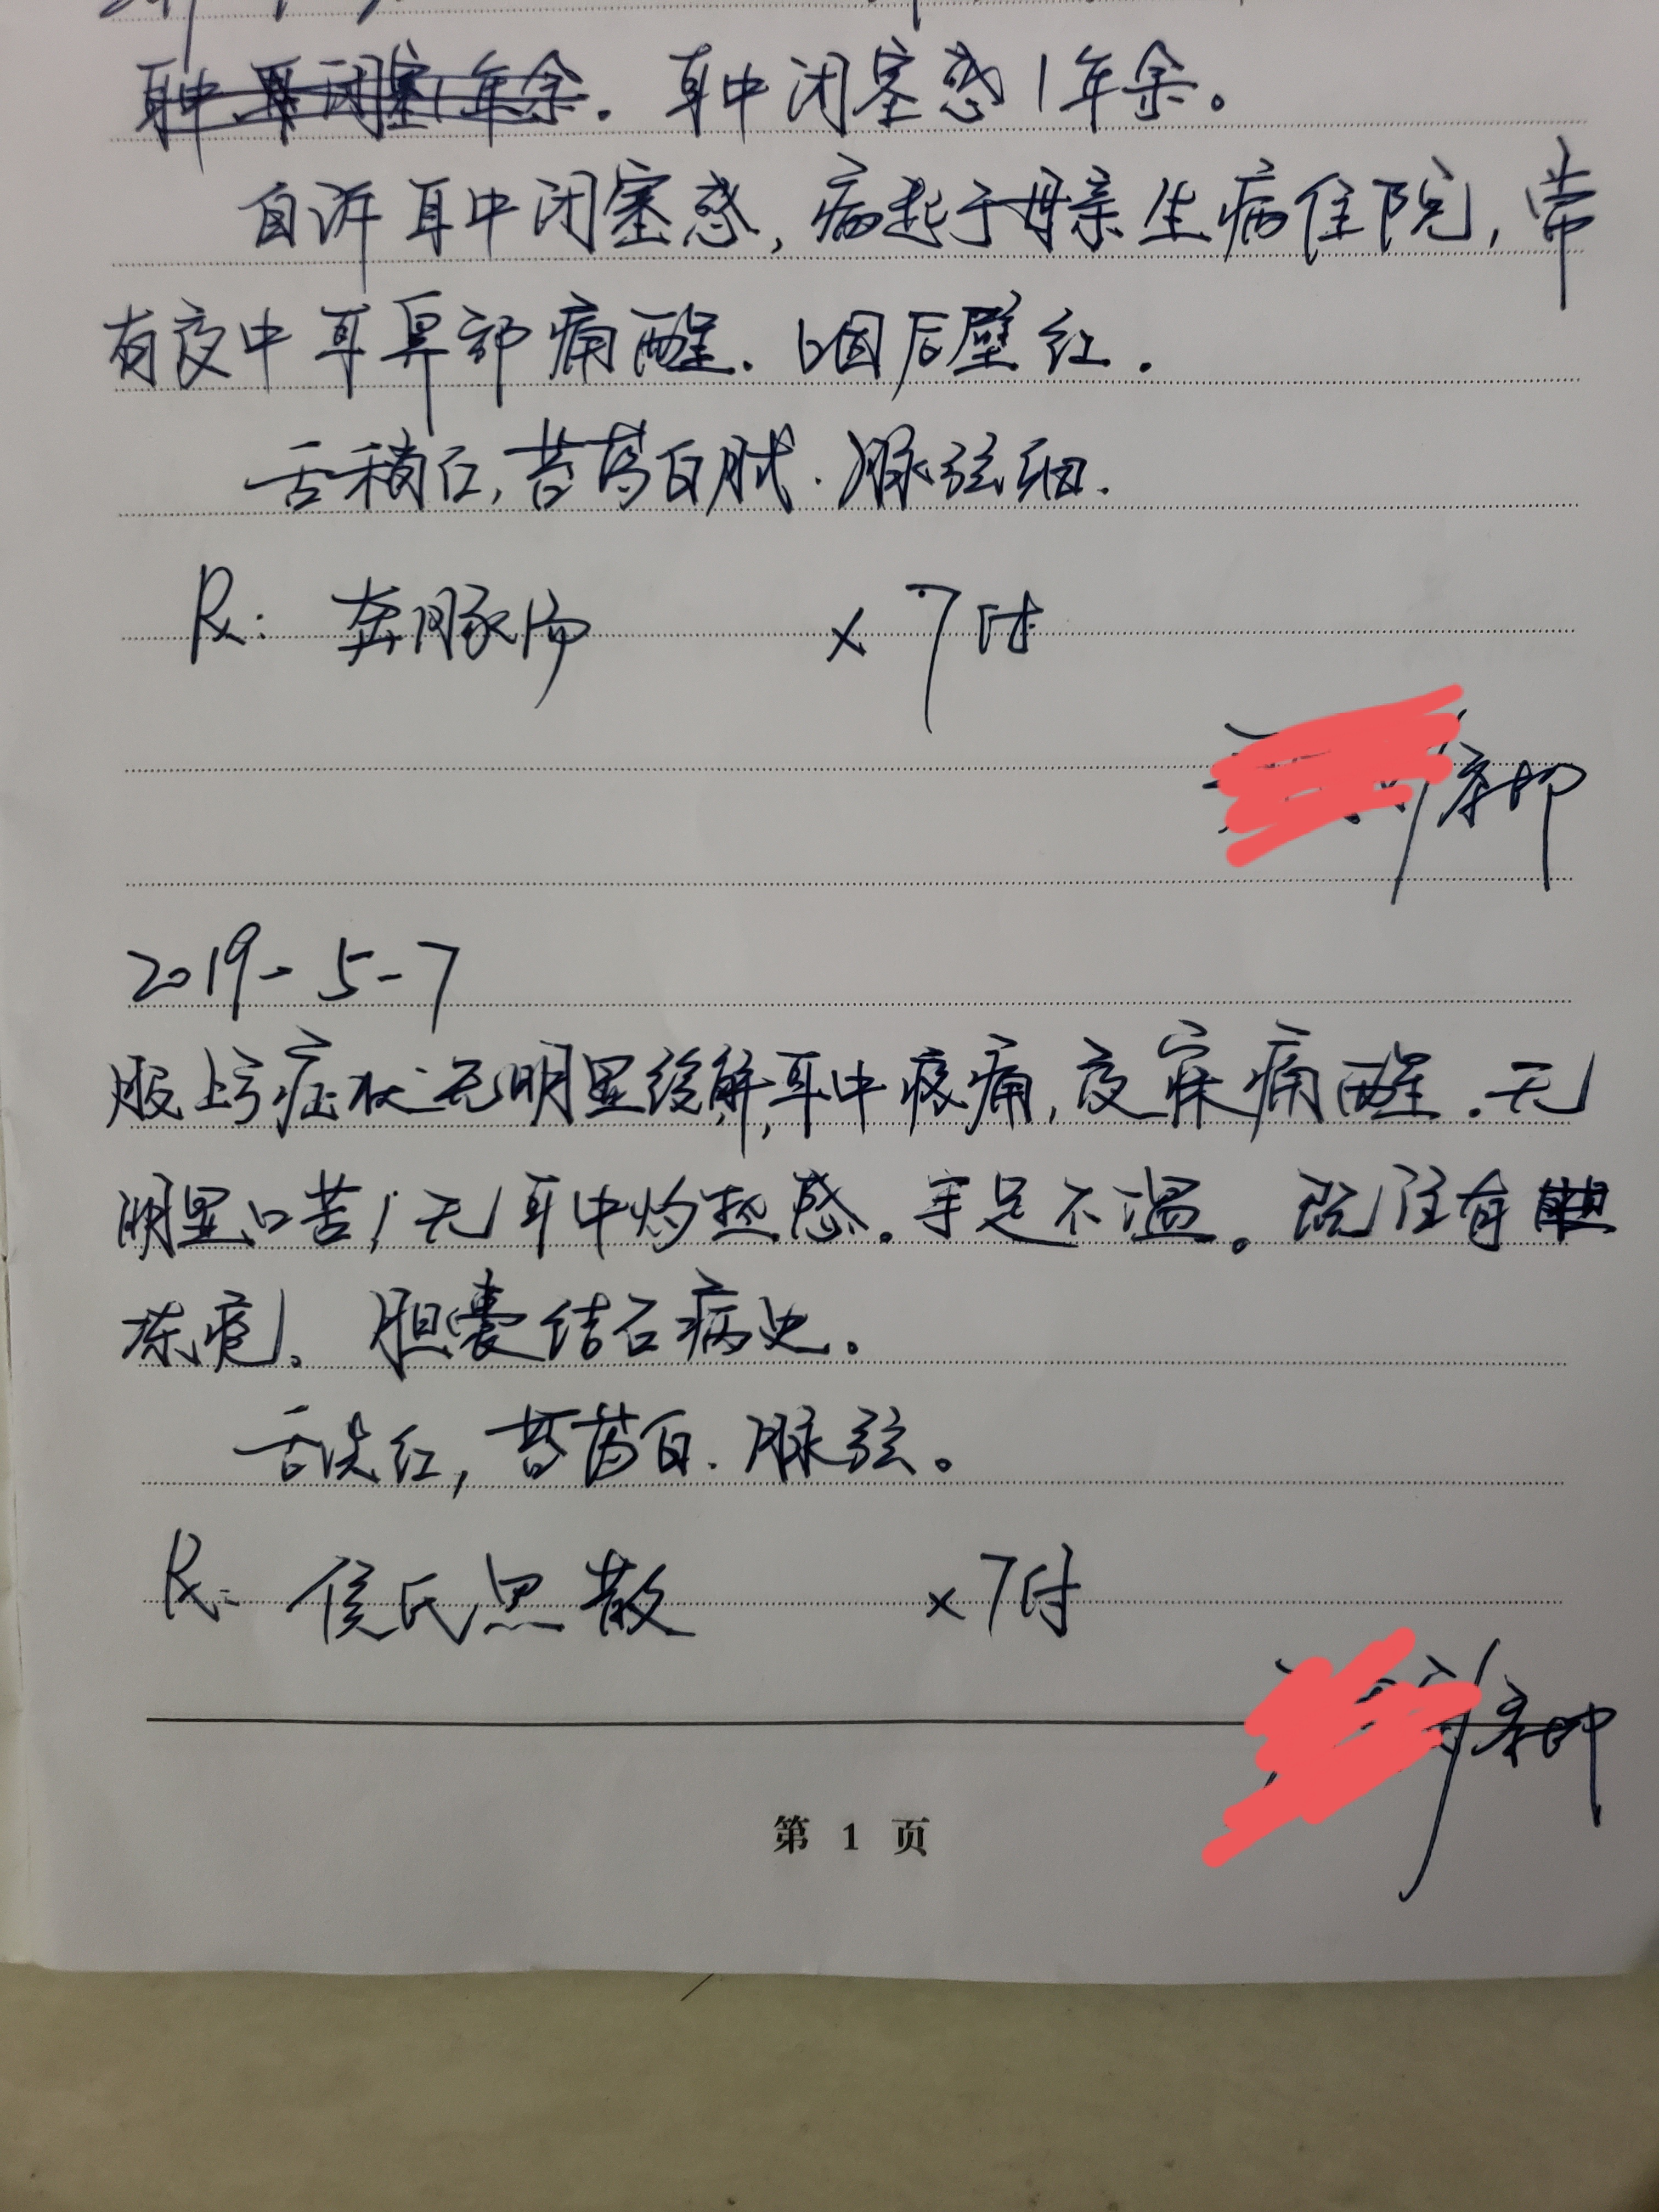 耳中闭塞感1年余。
自诉耳中闭塞感,病起于母亲生病住院,常
有夜中耳鼻部痛醒.咽后壁红.
舌稍红,苔薄白腻.脉弦细.
Rx: 奔豚汤 ×7付
2019-5-7
服上方症状无明显缓解,耳中疼痛,夜寐痛醒.无
明显口苦,无耳中灼热感.手足不温。既往有
冻疮、胆囊结石病史。
舌淡红,苔薄白.脉弦。
Rx: 侯氏黑散 ×7付
第 1 页